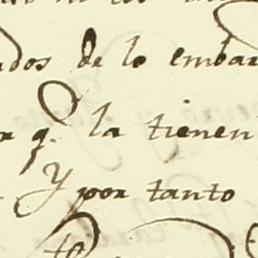 dos de lo embar
r q. la tienen
Y por tanto